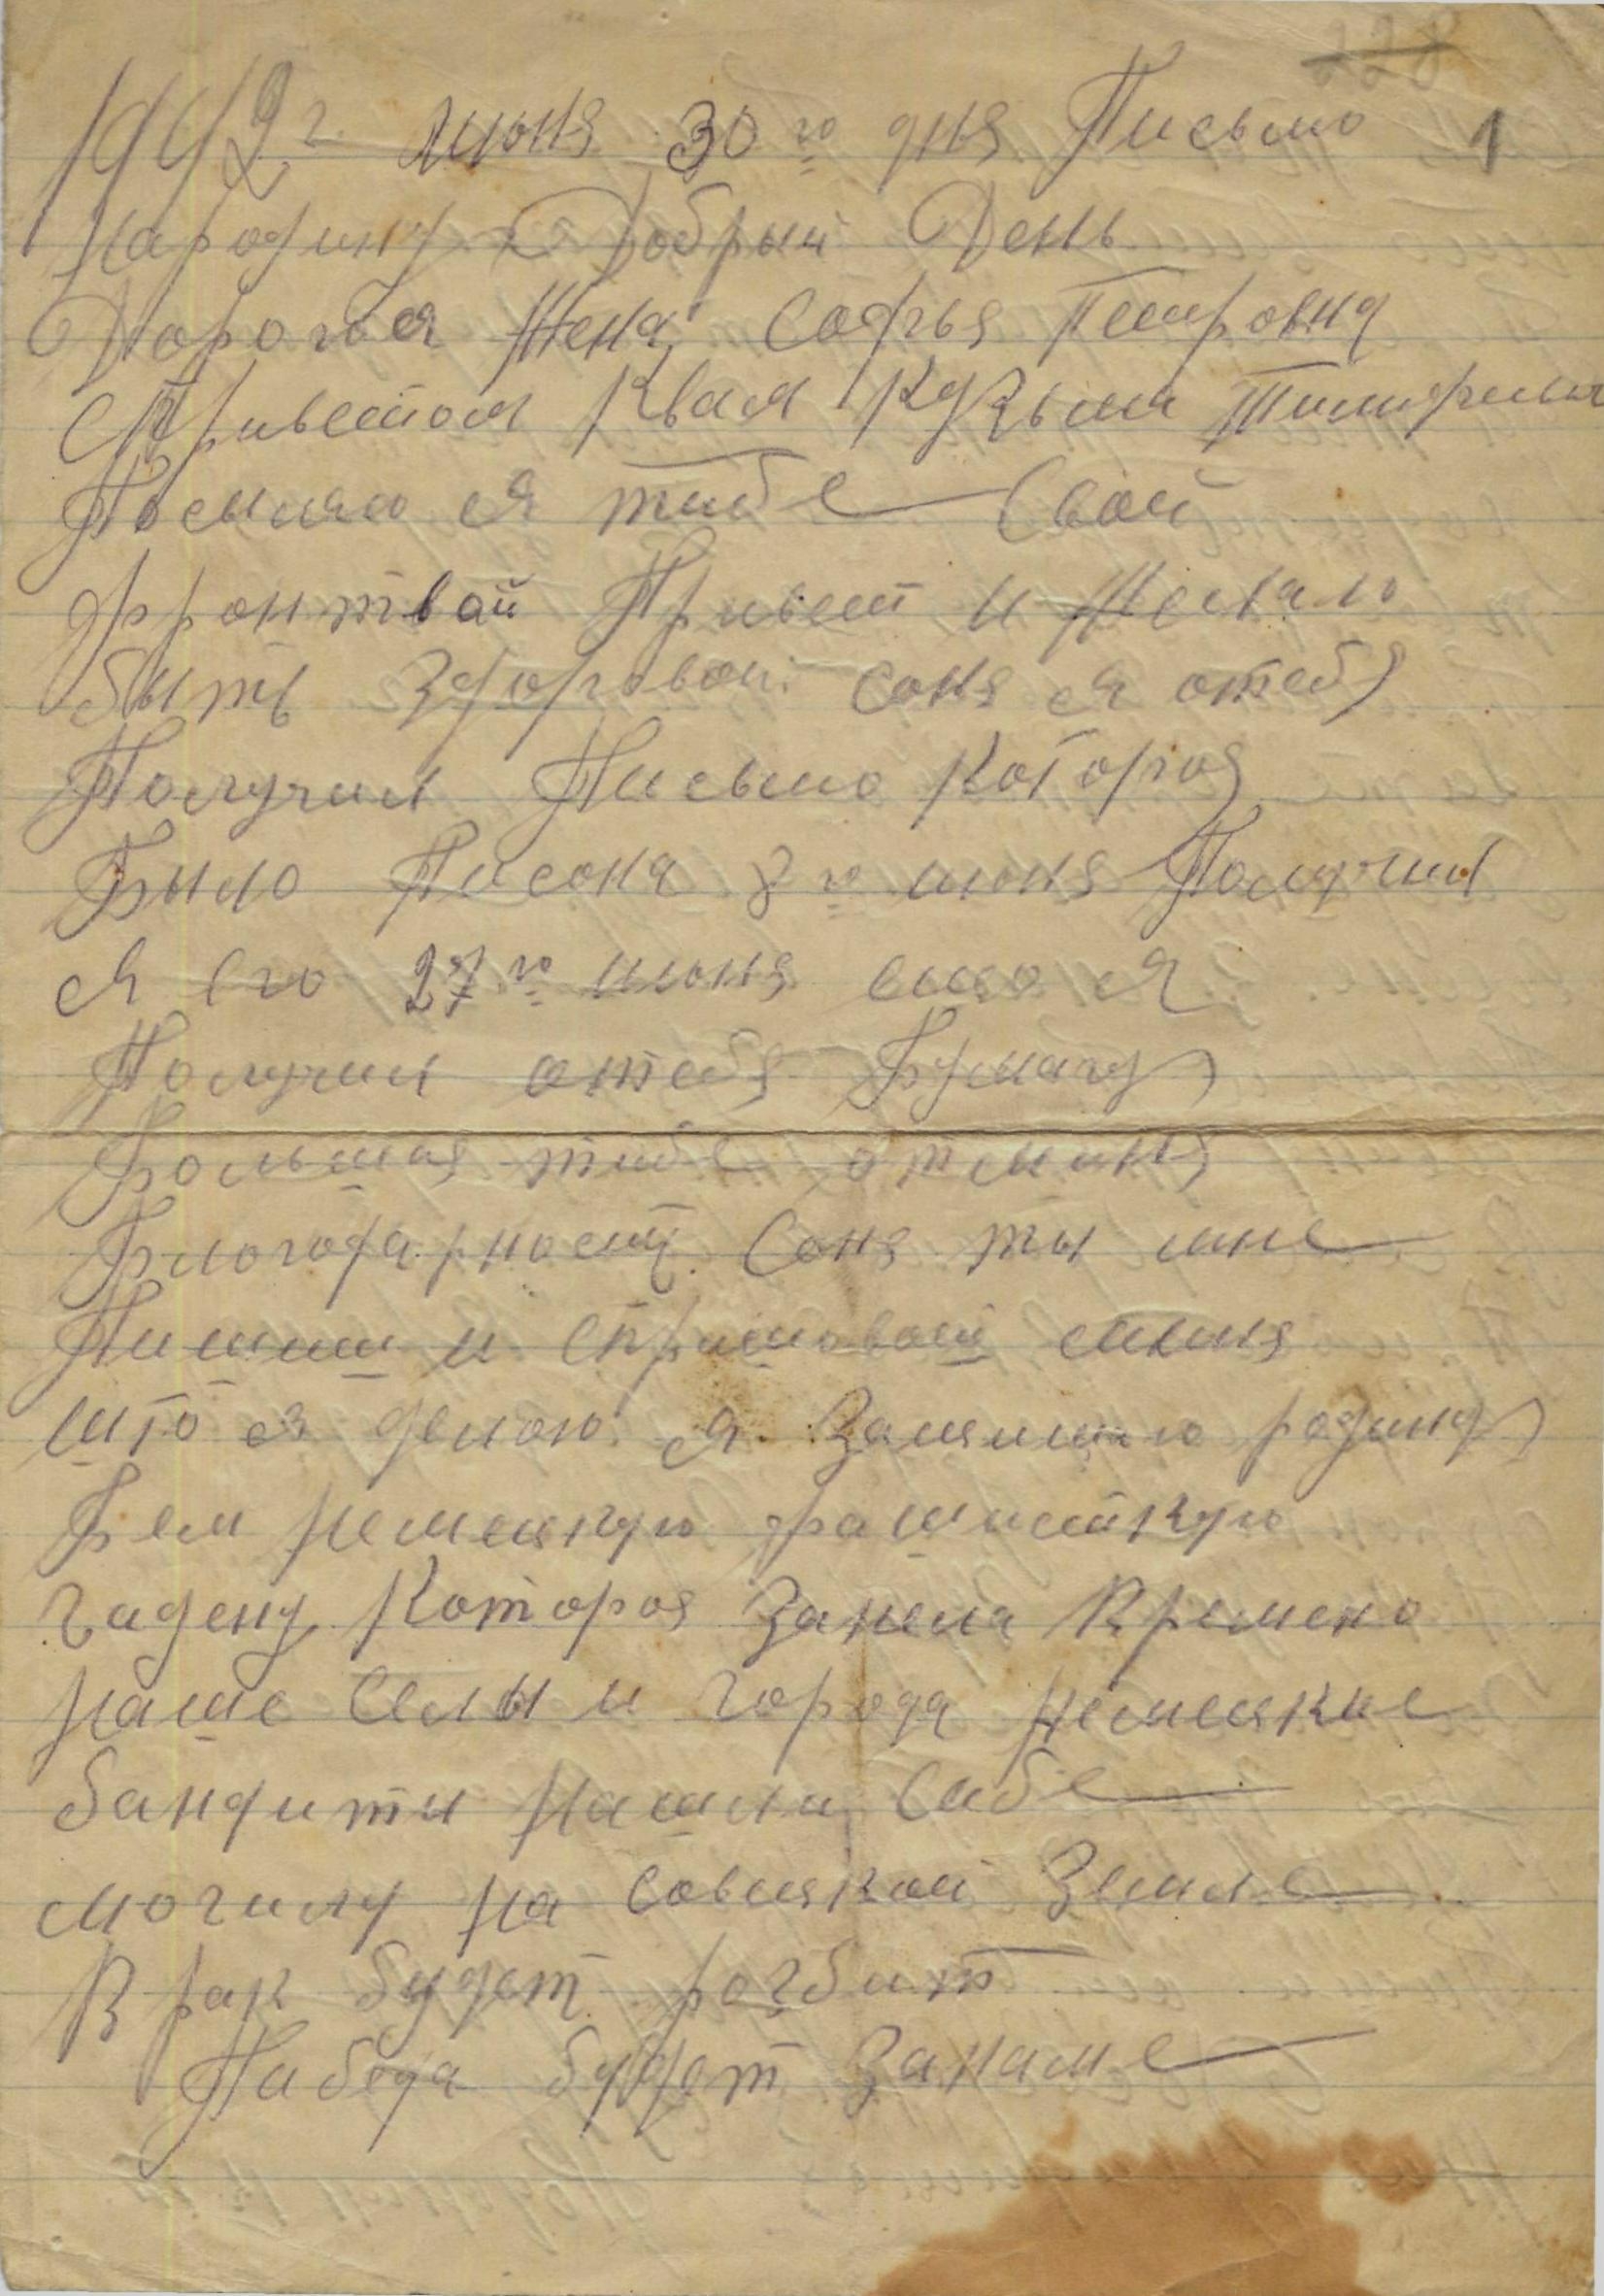 228
1942 г. июня 30 го дня Письмо 1
народину Добрый День
Дорогая Жена Софья Петровна
С Приветом Квам Кузьма
Посылаю я тибе Свой
фронтвой Привет и Желаю
быть Здоровой Соня я отебя
Получил Письмо Которая
Было Писона 8 го июня Получил
я Его 27 го июня ещо я
Получил отебя Бумагу
Большая тибе отминя
Блогодарность Соня ты мне
Пишиш и Спрашоваш
што я делою я Защищаю родину
Бем немецкую фашисткую
гадену Которая Занела Времено
наше Селы и города немецкие
бандиты нашли Сибе
могилу на Совецкой Земле
Врак будет розбит
Пабеда будет Занаме